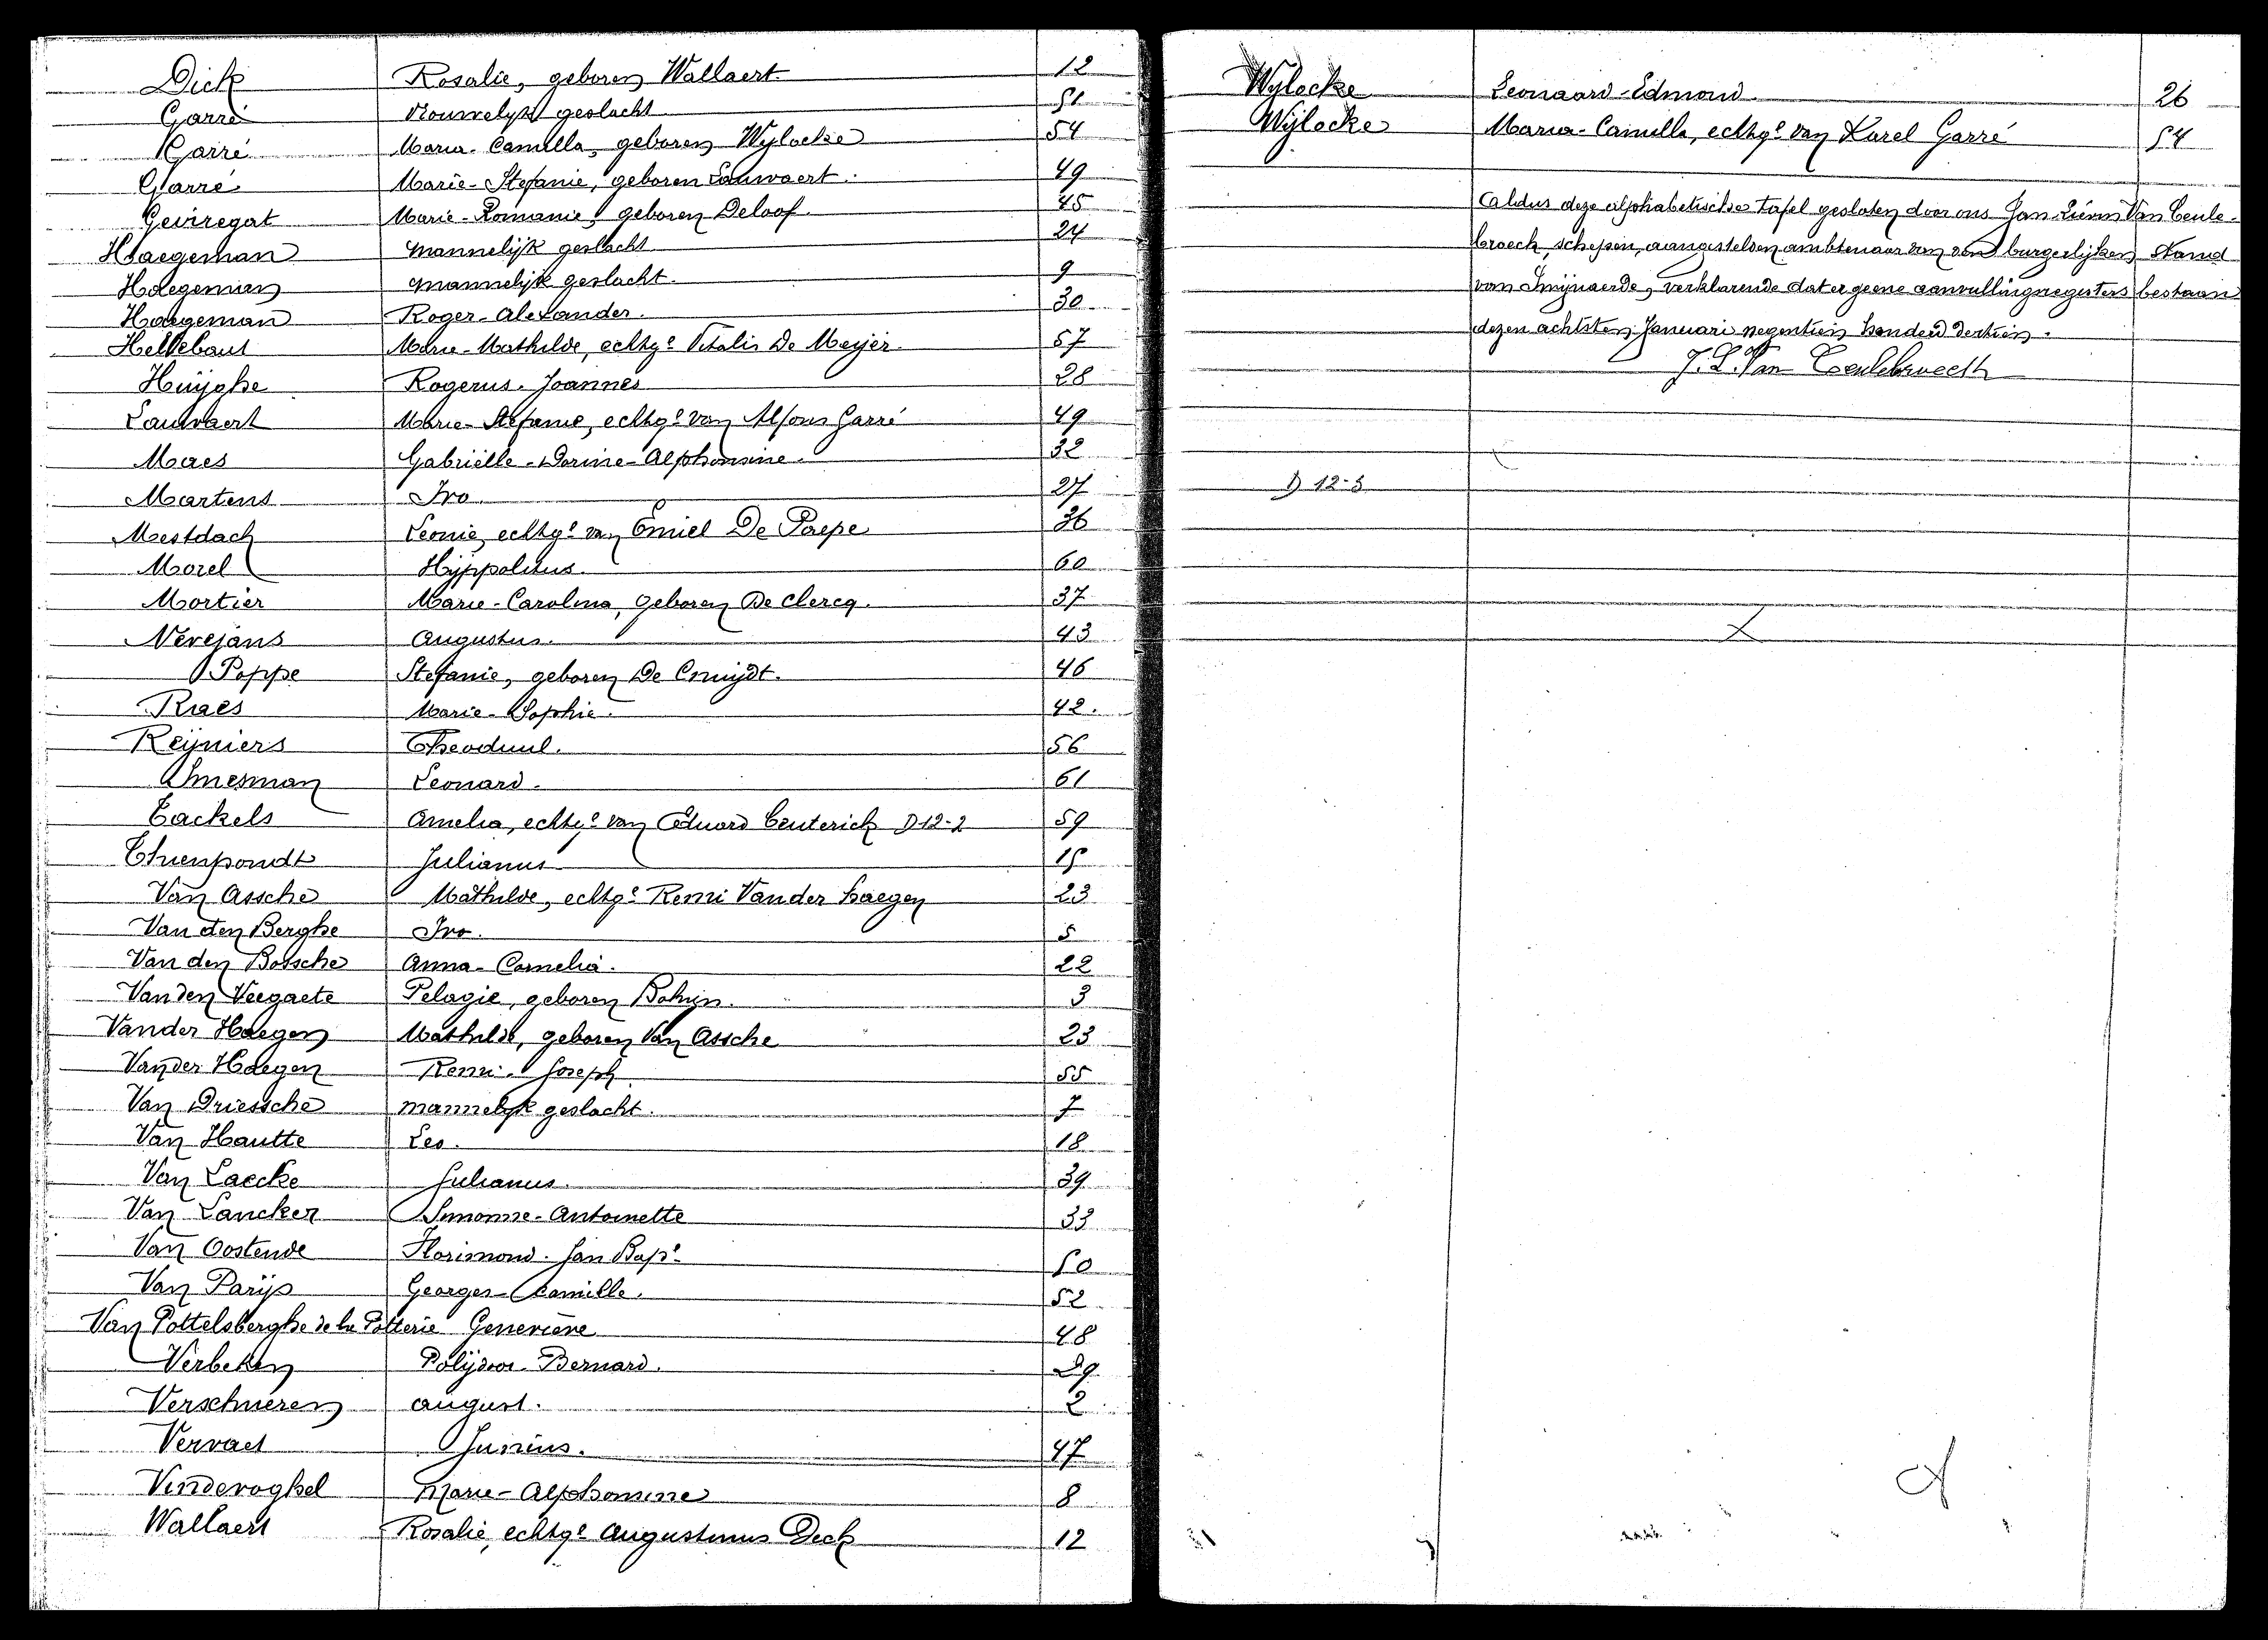 Dick Rosalie, geboren Wallaert 12
Garré Vrouwelijk geslacht 51
Garré Maria-Camilla, geboren Wijlocke 54
Garré Marie-Stefanie, geboren Lauwaert. 49
Geviregat Marie-Romanie, geboren Deloof. 45
Haegeman mannelijk geslacht 24
Haegeman mannelijk geslacht. 9
Haegeman Roger-Alexander. 30
Hellebaut Marie-Mathilde, echtge Vitalis De Meijer 57
Huijghe Rogerus-Joannes 28
Lauwaert Marie-Stefanie, echtge van Alfons Garré 49
Maes Gabriëlle-Dorine-Alphonsine. 32
Martens Ivo 27
Mestdach Leonie, echtge van Emiel De Paepe 36
Morel Hijppolitus. 60
Mortier Marie-Carolina, geboren De Clercq. 37
Nevejans Augustus. 43
Poppe Stefanie, geboren De Cruijdt. 46
Raes Marie-Sophie. 42.
Reijniers Theoduul. 56
Smesman Leonard. 61
Tackels Amelia, echtge van Eduard Centerick D 12-2 59
Thienpondt Julianus 15
Van Assche Mathilde, echtge Remi Vander Haegen 23
Van den Berghe Ivo. 5
Van den Bossche Anna-Cornelia. 22
Van den Veegaete Pelagie, geboren Bohijn. 3
Vander Haegen Mathilde, geboren Van Assche 23
Vander Haegen Remi-Joseph 55
Van Driessche mannelijk geslacht. 7
Van Hautte Leo. 18
Van Laecke Julianus. 39
Van Lancker Simonne-Antoinette 33
Van Oostende Florimond-Jan Bapt. 50
Van Parijs Georges-Camille. 52
Van Pottelsberghe de la Potterie Geneviève 48
Verbeken Polijdoor-Bernard. 29
Verschueren August. 2
Vervaet Junius. 47
Vindevoghel Marie-Alphonsine 8
Wallaert Rosalie, echtge Augustinus Dick 12
Wijlocke Leonaard-Edmond 26
Wijlocke Maria-Camilla, echtge van Karel Garré 54
Aldus deze alphabetische tafel gesloten door ons Jan Lievin Van Ceule-
broeck, schepen, aangestelden ambtenaar van den burgerlijken Stand
van Swijnaerde, verklarende dat er geene aanvullingregisters bestaan
dezen achtsten Januari negentien honderd dertien.
J. L. Van Ceulebroeck
D 12-3